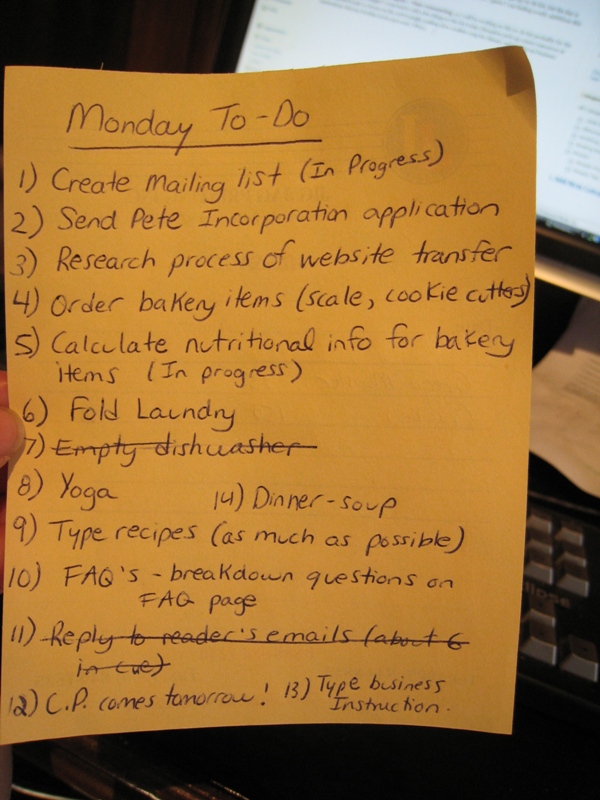 Monday To-Do
1) Create Mailing list (In Progress)
2) Send Pete Incorporation application
3) Research process of website transfer
4) Order bakery items (scale, cookie cutters)
5) Calculate nutritional info for bakery
items (In progress)
6) Fold Laundry
7) Empty dishwasher
8) Yoga
14) Dinner-soup
9) Type recipes (as much as possible)
10) FAQ's - breakdown questions on
FAQ page
11) Reply to reader's emails (about 6
in cue)
12) C.P. comes tomorrow! 13) Type business
Instruction.